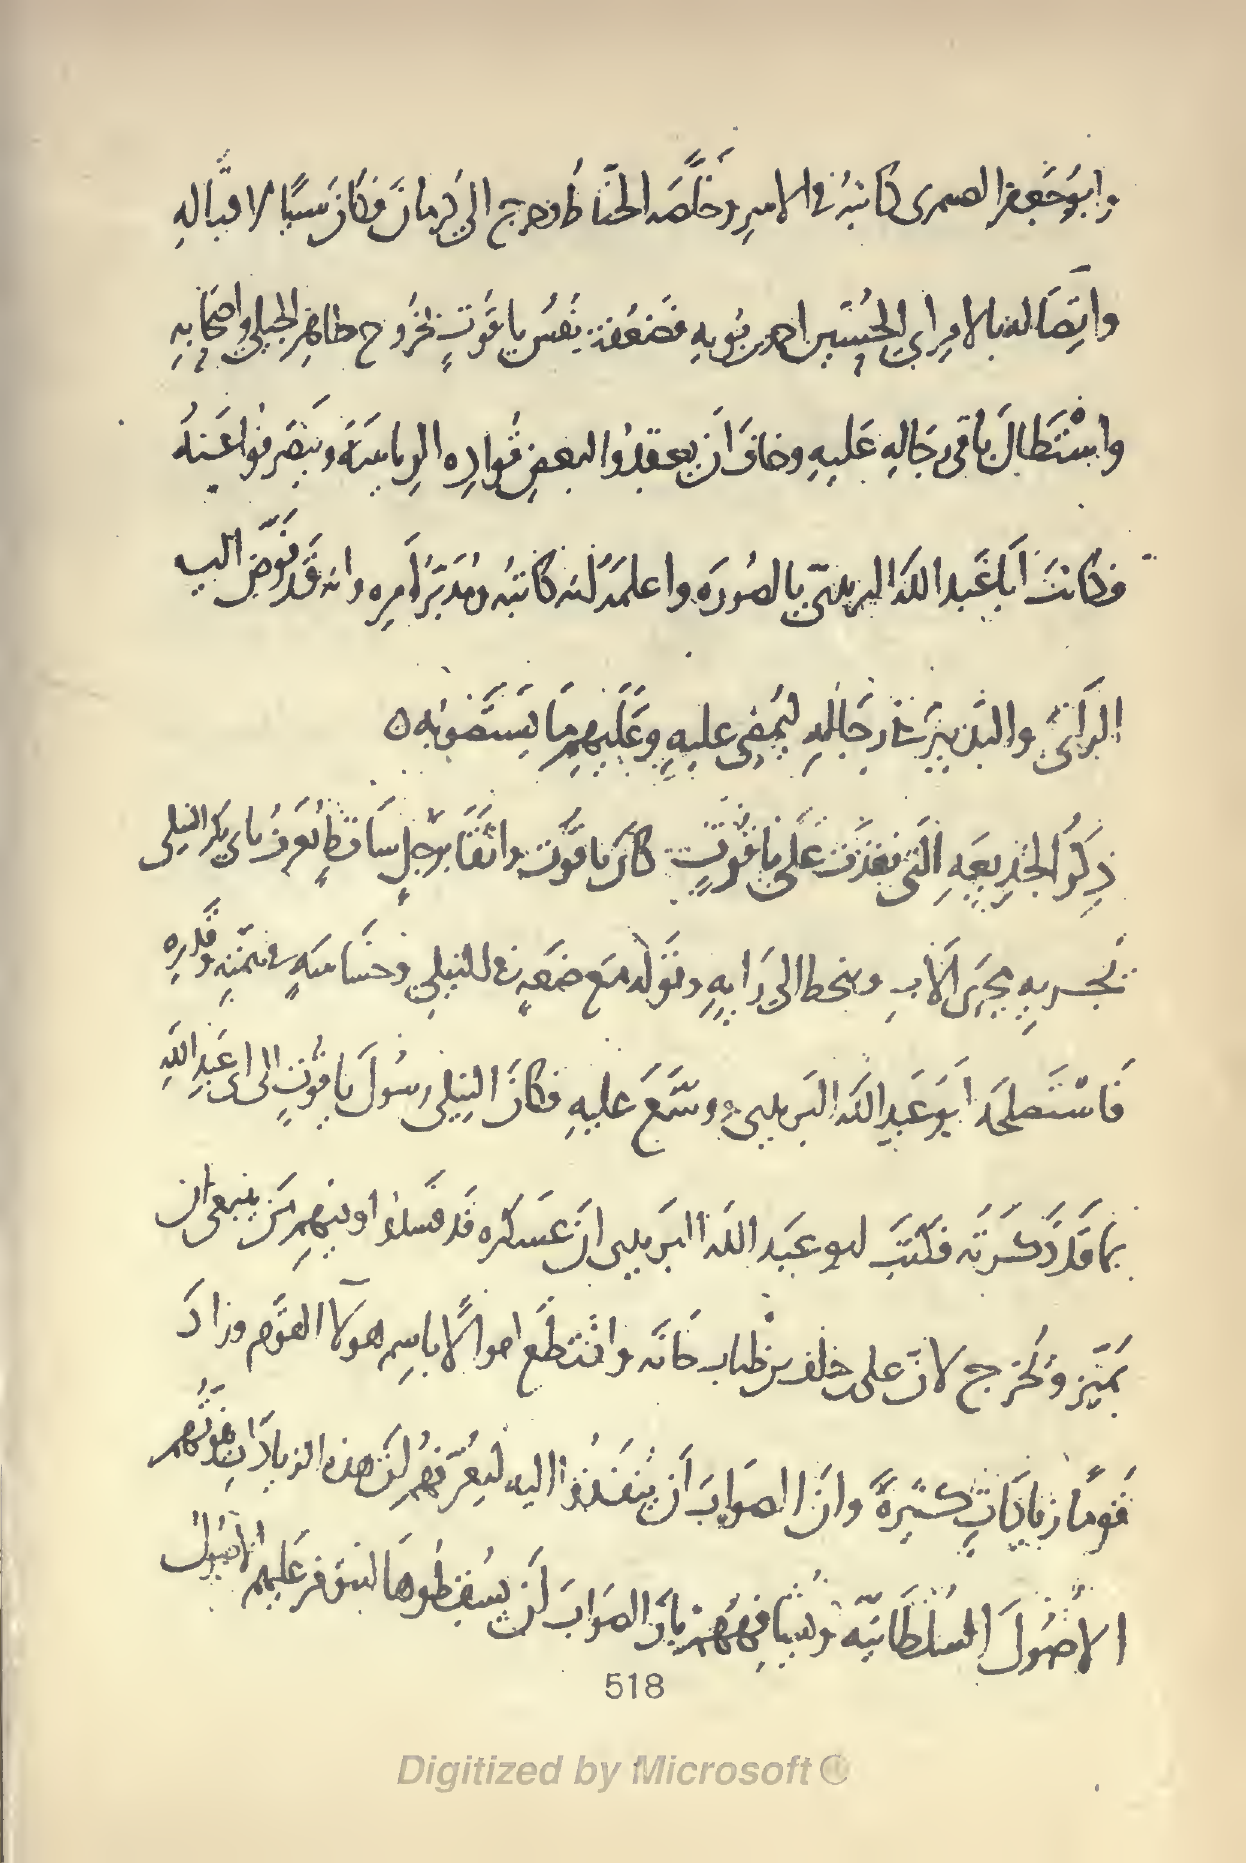 وابو جعفر الصيمرى كاتبه فى الاسر وخلّصه الحنّاط وخرج الى كرمان فكان سببًا لاقباله
واتّصاله بالامير ابى الحسين احمد بن بويه فضعفت نفس ياقوت بخروج طاهر الجيلى واصحابه
واستطال باقى رجاله عليه وخاف ان يعقدوا لبعض قواده الرياسة وينصرفوا عنه
فكاتب ابا عبد الله البريدىّ بالصورة واعلمه انه كاتبه ومدبّر امره وانه قد فوّض اليه
الرأى والتدبير فى رجاله ليمضى عليه وعليهم ما يستصوبه ه
ذكر الخديعة التى نفذت على ياقوت كان ياقوت واثقًا برجل ساقط يعرف بابى بكر النيلى
تجرى به مجرى الاب وينحط الى رايه وقوله مع ضعة فى النيلى وخساسة فى همّته وقدره
فاستصلحه ابو عبد الله البريدى ووسّع عليه فكان النيلى رسول ياقوت الى ابى عبد الله
بما قد ذكرته فكتب ابو عبد الله البريدى ان عسكره قد فسدوا وفيهم من ينبغى ان
يميّز ويخرج لانّ على خلف بن طياب خانه واقتطع اموالا باسم هولا القوم وزاد
قومًا زيادات كثيرة وانّ الصواب ان ينفذوا اليه ليعرّفهم ان هذه الزيادات
الاصول السلطانيّة ويشافههم بان الصواب ان يسقطوها لتتوفر عليهم الاصول
518
Digitized by Microsoft ®